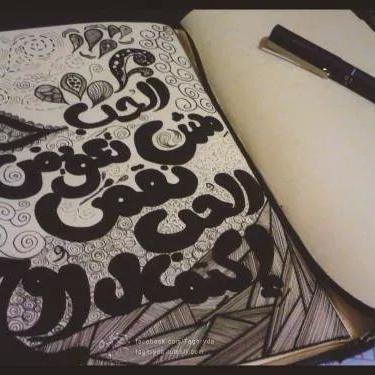 الحب
مش تعويض
نقص
الحب
إكتمال
facebook.com/Taghryda
taghryda.tumblr.com